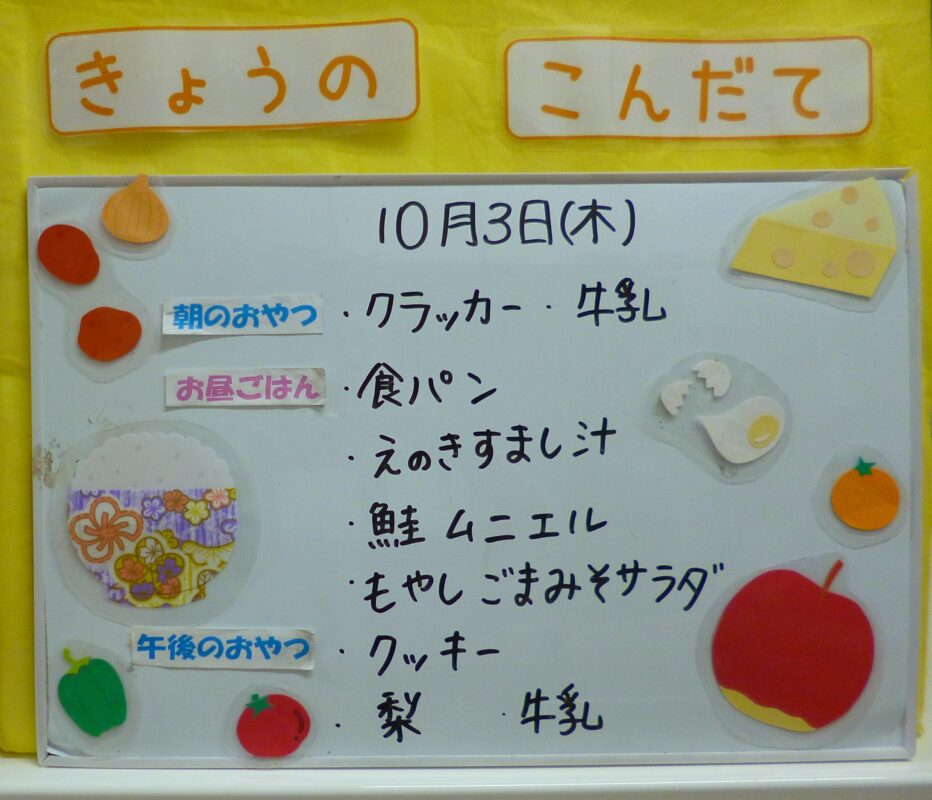 きょうの こんだて
10月3日(木)
朝のおやつ ・クラッカー ・牛乳
お昼ごはん ・食パン
・えのきすまし汁
・鮭ムニエル
・もやしごまみそサラダ
午後のおやつ ・クッキー
・梨 ・牛乳